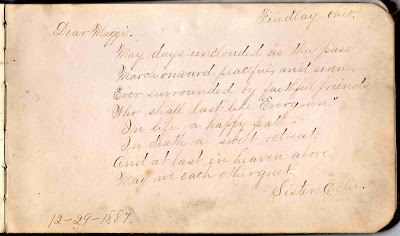 Findlay Ohio.
Dear Maggie.
May days unclouded as they pass
March onward peaceful and serene.
Ever surrounded by faithful friends
Who shall last like "Evergreen"
In life a happy path
In death a sweet retreat,
And at last in heaven above
May we each other greet.
Sister Ollie.
12-29-1887.